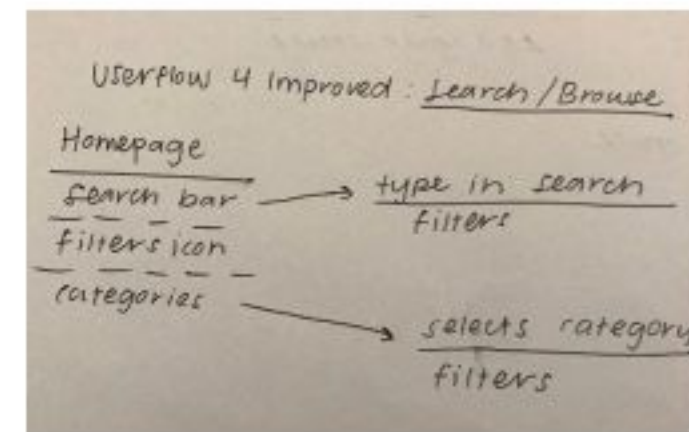 Userflow 4 Improved: Search/Browse
Homepage
search bar
type in search
filters
filters icon
categories
selects category
filters